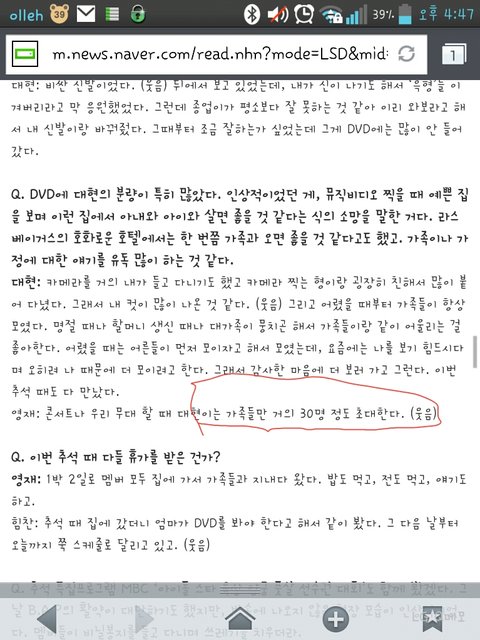 olleh 39 M 39% 오후 4:47
m.news.naver.com/read.nhn?mode=LSD&mid= 1
대현: 비싼 신발이었다. (웃음) 뒤에서 보고 있었는데, 내가 신이 나기도 해서 '흑형'들 이
겨버리라고 막 응원했었다. 그런데 종업이가 평소보다 잘 못하는 것 같아 이리 와보라고 해
서 내 신발이랑 바꿔줬다. 그때부터 조금 잘하는가 싶었는데 그게 DVD에는 많이 안 들어
갔다.
Q. DVD에 대현의 분량이 특히 많았다. 인상적이었던 게, 뮤직비디오 찍을 때 예쁜 집
을 보며 이런 집에서 아내와 아이와 살면 좋을 것 같다는 식의 소망을 말한 거다. 라스
베이거스의 호화로운 호텔에서는 한 번쯤 가족과 오면 좋을 것 같다고도 했고. 가족이나 가
정에 대한 얘기를 유독 많이 하는 것 같다.
대현: 카메라를 거의 내가 들고 다니기도 했고 카메라 찍는 형이랑 굉장히 친해서 많이 붙
어 다녔다. 그래서 내 컷이 많이 나온 것 같다. (웃음) 그리고 어렸을 때부터 가족들이 항상
모였다. 명절 때나 할머니 생신 때나 대가족이 뭉치곤 해서 가족들이랑 같이 어울리는 걸
좋아한다. 어렸을 때는 어른들이 먼저 모이자고 해서 모였는데, 요즘에는 나를 보기 힘드시다
며 오히려 나 때문에 더 모이려고 한다. 그래서 감사한 마음에 더 보러 가고 그런다. 이번
추석 때도 다 만났다.
영재: 콘서트나 우리 무대 할 때 대현이는 가족들만 거의 30명 정도 초대한다. (웃음)
Q. 이번 추석 때 다들 휴가를 받은 건가?
영재: 1박 2일로 멤버 모두 집에 가서 가족들과 지내다 왔다. 밥도 먹고, 전도 먹고, 얘기도
하고.
힘찬: 추석 때 집에 갔더니 엄마가 DVD를 봐야 한다고 해서 같이 봤다. 그 다음 날부터
오늘까지 쭉 스케줄로 달리고 있고. (웃음)
Q. 추석 특집프로그램 MBC '아이돌 스타